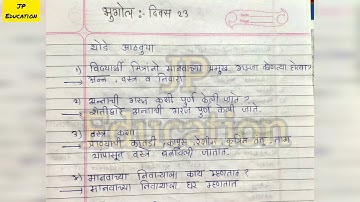 JP
EDUCATION
भुगोल :- दिवस 23
थोडे आठवूया
१) विद्यार्थी मित्रांनो मानवाच्या प्रमुख गरजा कोणत्या होत्या?
→ अन्न, वस्त्र व निवारा.
२) अन्नाची गरज कशी पुर्ण केली जाते?
→ शेतीद्वारे अन्नाची गरज पुर्ण केली जाते.
३) वस्त्र कशा
→ प्राण्याची कातडी, कापुस, रेशीम, कृत्रिम धागे, ताग
यापासून वस्त्र बनविली जातात.
४) मानवाच्या निवाऱ्याला काय म्हणतात?
→ मानवाच्या निवाऱ्याला घर म्हणतात
JP
Education